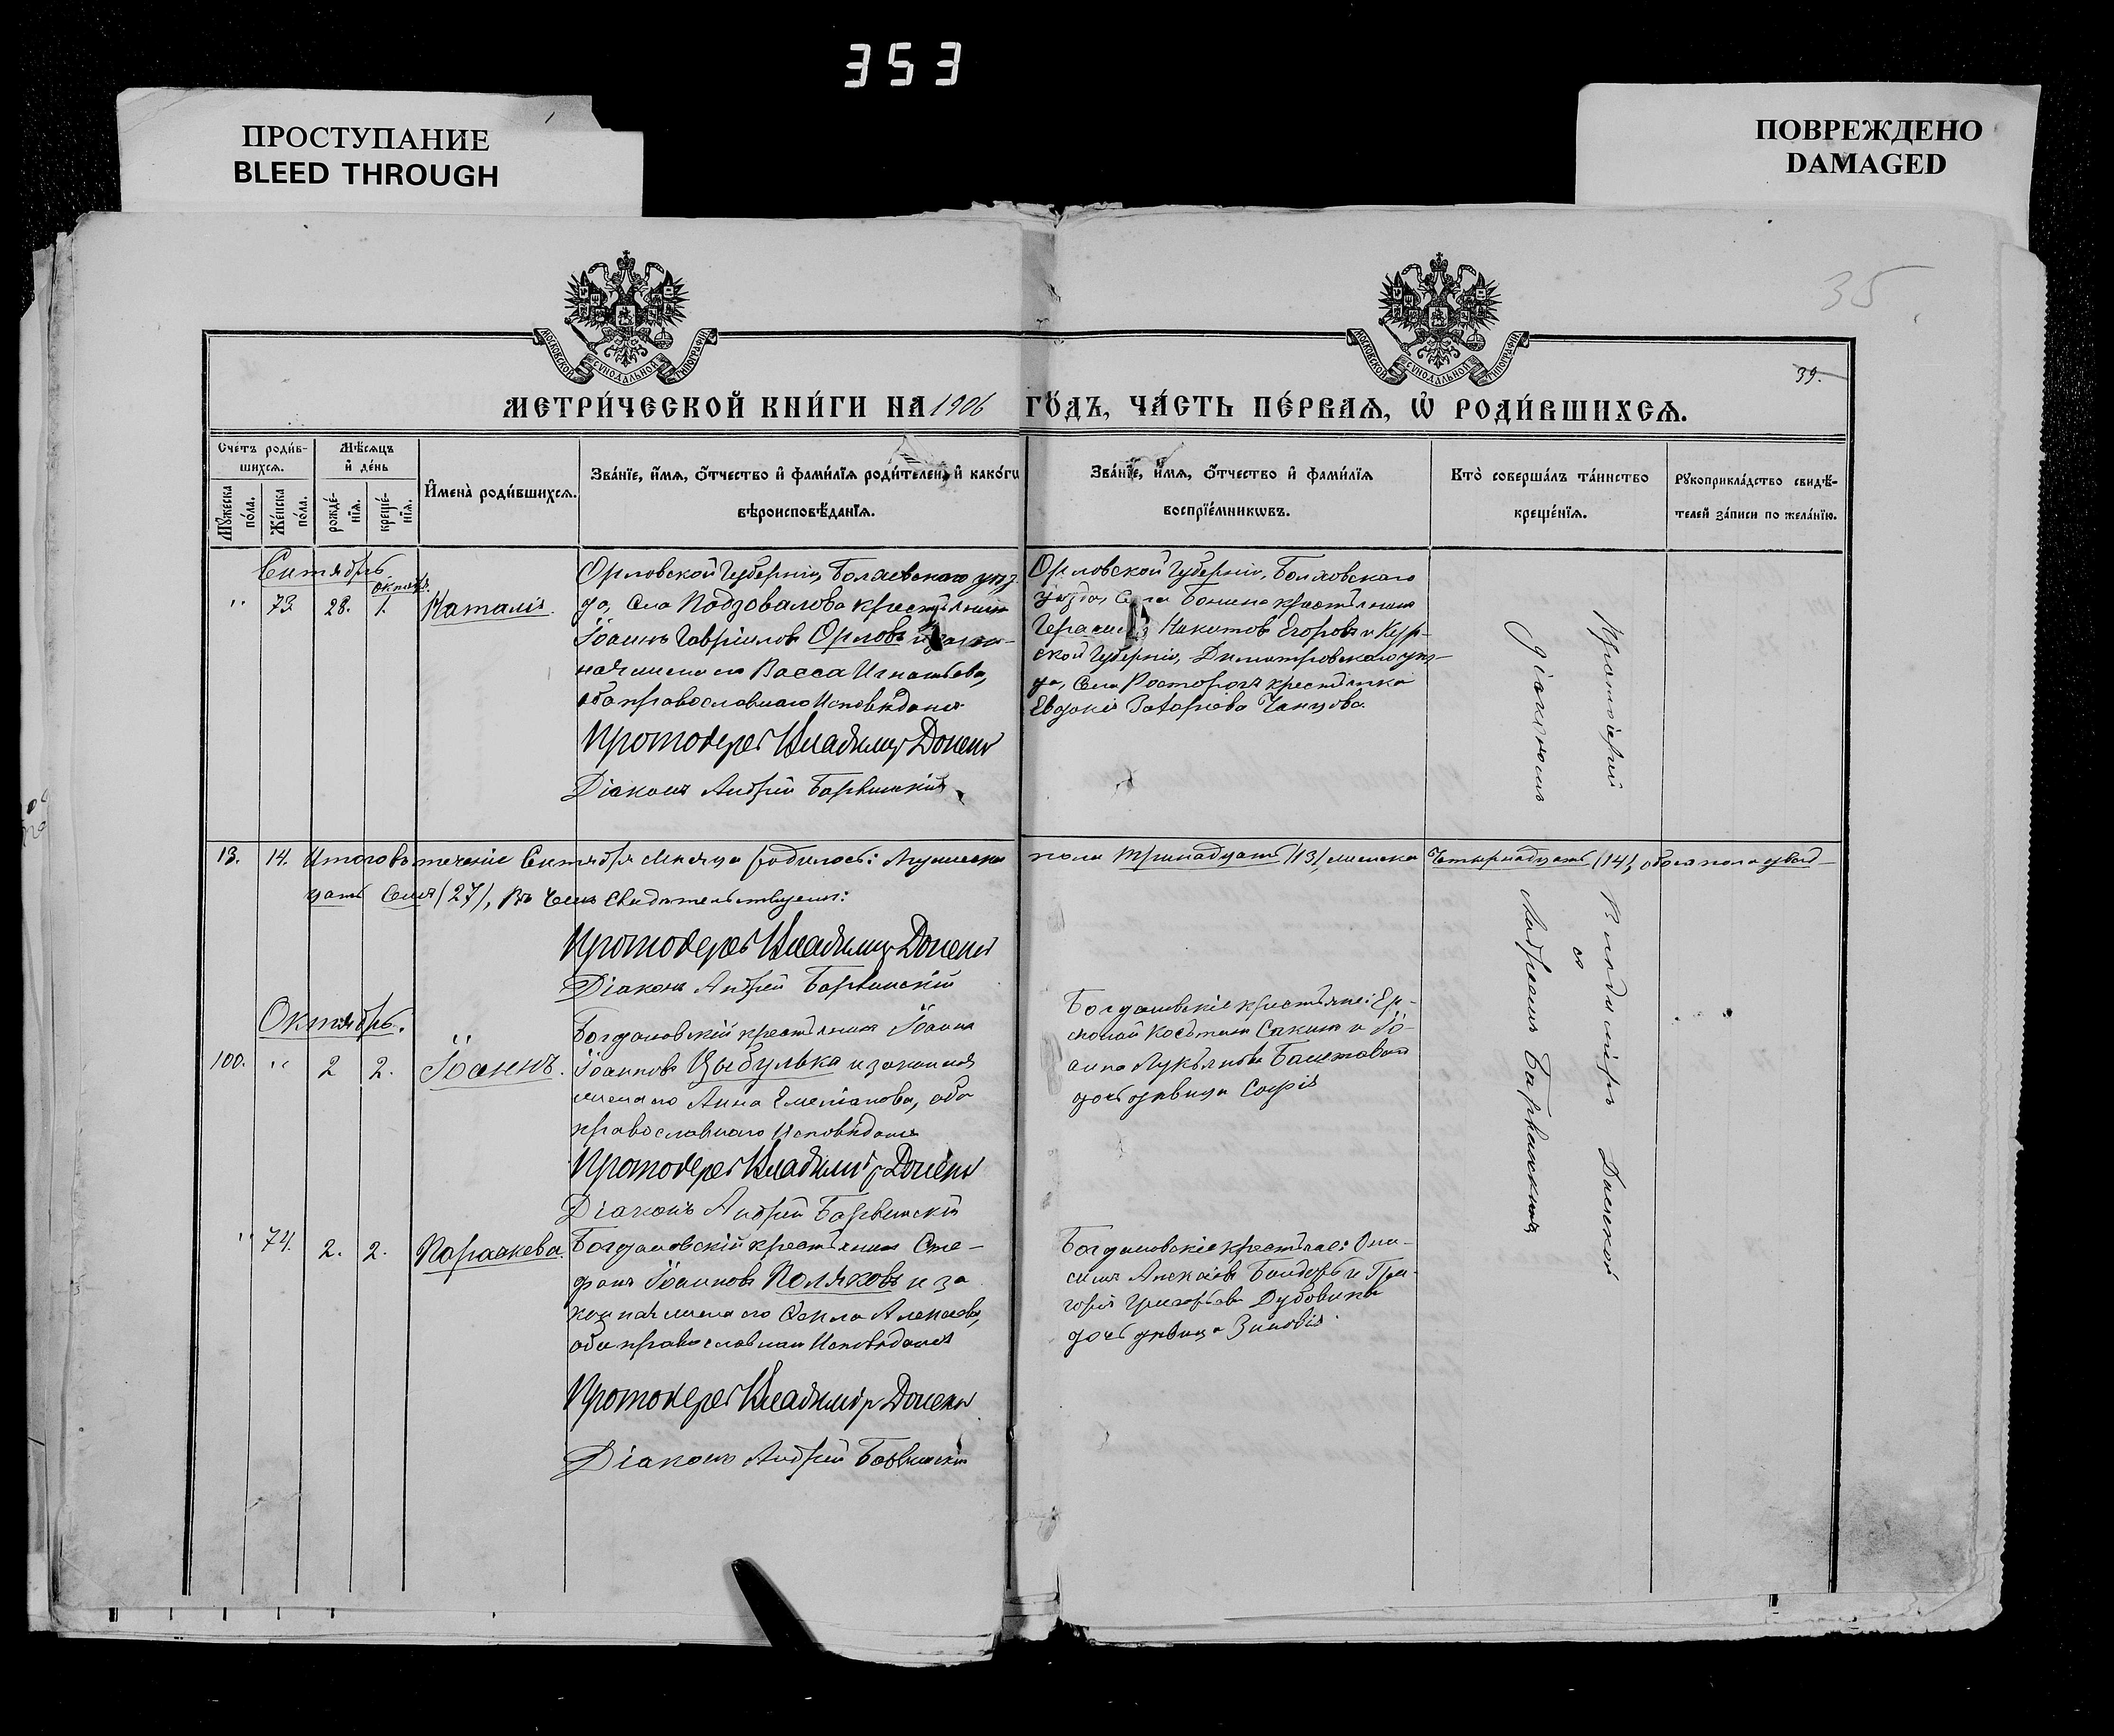 353
ПРОСТУПАНИЕ
BLEED THROUGH
ПОВРЕЖДЕНО
DAMAGED
35
39.
МОСКОВСКОЙ СѴНОДАЛЬНОЙ ТИПОГРАФІИ
МОСКОВСКОЙ СѴНОДАЛЬНОЙ ТИПОГРАФІИ
МЕТРИ́ЧЕСКОЙ КНИ́ГИ НА 1906 ГО́ДЪ, ЧА́СТЬ ПЕ́РВАѦ, Ѡ РОДИ́ВШИХСѦ.
Сче́тъ роди́в-
шихсѧ.
Мꙋ́жеска по́ла.
Же́нска по́ла.
Мѣ́сѧцъ
и де́нь
рожде́-
нїѧ.
креще́-
нїѧ.
Имена̀ роди́вшихсѧ.
Зва́нїе, и́мѧ, о́тчество и фами́лїѧ роди́телей, и како́гѡ
вѣроисповѣ́данїѧ.
Зва́нїе, и́мѧ, о́тчество и фами́лїѧ
воспрїе́мникѡвъ.
Кто̀ соверша́лъ та́инство
креще́нїѧ.
Рꙋкоприкла́дство свидѣ́-
телей за́писи по жела́нїю.
Сентябрь
октябр.
" 73 28. 1. Наталія.
Орловской Губерніи, Болховскаго уѣз-
да, Села Подзовалова крестьянинъ
Іоаннъ Гавріиловъ Орловъ и закон-
ная жена его Васса Игнатьева,
оба православнаго Исповѣданія
Протоіерей Владиміръ Донецкій
Діаконъ Андрей Барвинскій
Орловской Губерніи, Болховскаго
уѣзда, Села Бонина крестьянинъ
Герасимъ Никитовъ Егоровъ и Кур-
ской Губерніи, Димитровскаго уѣз-
да, Села Расторогъ крестьянка
Евдокія Захаріева
Протоіерей
діакономъ
13. 14. Итого въ теченіе Сентября Мѣсяца родилось: Мужеска пола тринадцать (13), женска Четырнадцать (14), обоего пола двад-
цать Семь (27), Въ Чемъ Свидѣтельствуемъ:
Протоіерей Владиміръ Донецкій
Діаконъ Андрей Барвинскій
Владиміръ Донецкій
съ
Андреемъ Барвинскимъ
Октябрь.
100. " 2 2. Іоаннъ.
Богдановскій крестьянинъ Іоаннъ
Іоанновъ Цыбулька и законная
жена его Анна Емеліанова, оба
православнаго Исповѣданія
Протоіерей Владиміръ Донецкій
Діаконъ Андрей Барвинскій
Богдановскіе крестьяне: Ер-
молай Косьминъ Сакинъ и Іо-
анна Лукьянова
дочь дѣвица Софія
" 74. 2. 2. Параскева.
Богдановскій крестьянинъ Сте-
фанъ Іоанновъ Поляковъ и за-
конная жена его Ѳекла Алексѣева,
оба православнаго Исповѣданія
Протоіерей Владиміръ Донецкій
Діаконъ Андрей Барвинскій
Богдановскіе крестьяне: Они-
симъ Алексѣевъ Бондарь и Гри-
горія Григорьева Дубовика
дочь дѣвица Зиновія.